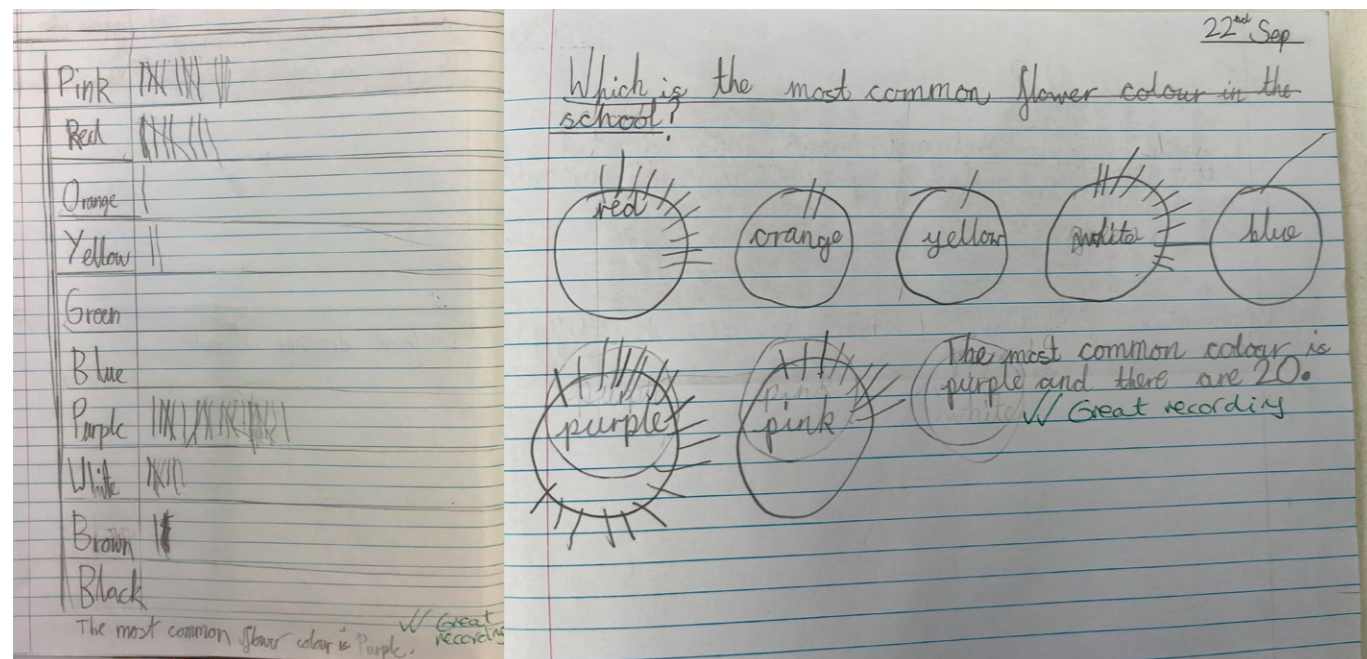 Pink
Red
Orange
Yellow
Green
Blue
Purple
White
Brown
Black
The most common flower colour is Purple.
√√ Great
recording
22nd Sep
Which is the most common flower colour in the
school?
red
orange
yellow
white
blue
purple
pink
The most common colour is
purple and there are 20.
√√ Great recording